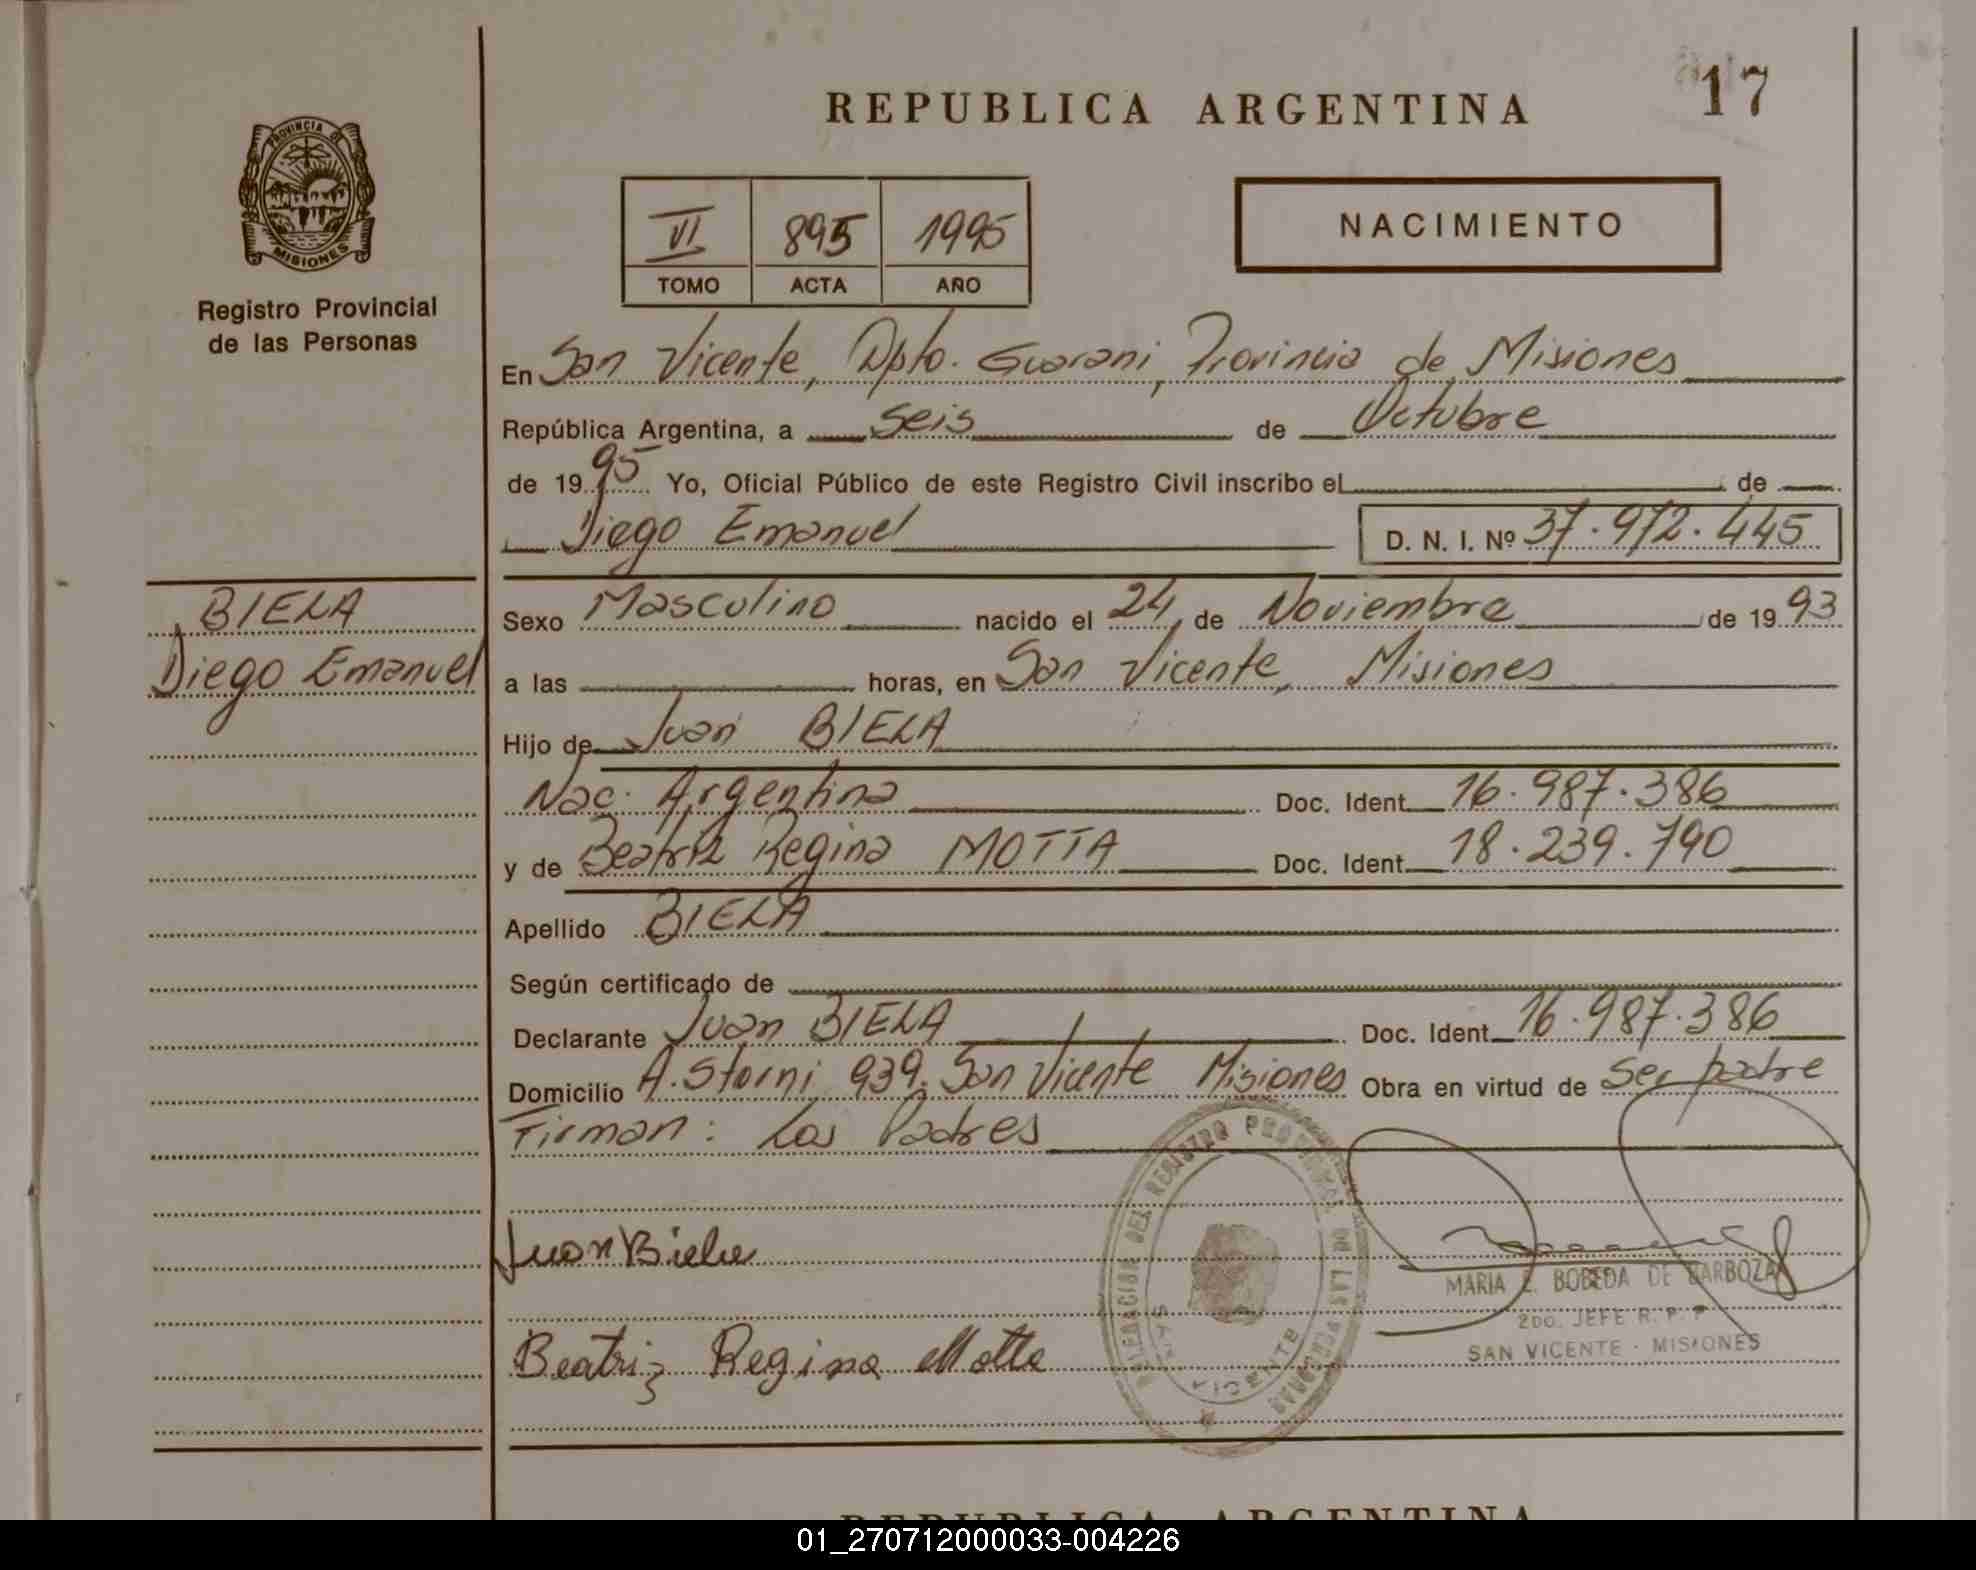 17
REPUBLICA ARGENTINA
PROVINCIA DE
MISIONES
Registro Provincial
de las Personas
VI 895 1995
TOMO ACTA AÑO
NACIMIENTO
En San Vicente, Dpto. Guarani, Provincia de Misiones
República Argentina, a Seis de Octubre
de 1995 Yo, Oficial Público de este Registro Civil inscribo el de
Diego Emanuel D. N. I. Nº 37.972.445
BIELA
Diego Emanuel
Sexo Masculino nacido el 24 de Noviembre de 1993
a las horas, en San Vicente, Misiones
Hijo de Juan BIELA
Nac. Argentina Doc. Ident. 16.987.386
y de Beatriz Regina MOTTA Doc. Ident. 18.239.790
Apellido BIELA
Según certificado de
Declarante Juan BIELA Doc. Ident. 16.987.386
Domicilio A. Storni 939, San Vicente Misiones Obra en virtud de Ser padre
Firman: Los Padres
Juan Biela
Beatriz Regina Motta
DELEGACION DEL REGISTRO PROVINCIAL DE LAS PERSONAS
SAN VICENTE
MARIA E. BOBEDA DE BARBOZA
2DO. JEFE R. P. P.
SAN VICENTE - MISIONES
REPUBLICA ARGENTINA
01_270712000033-004226